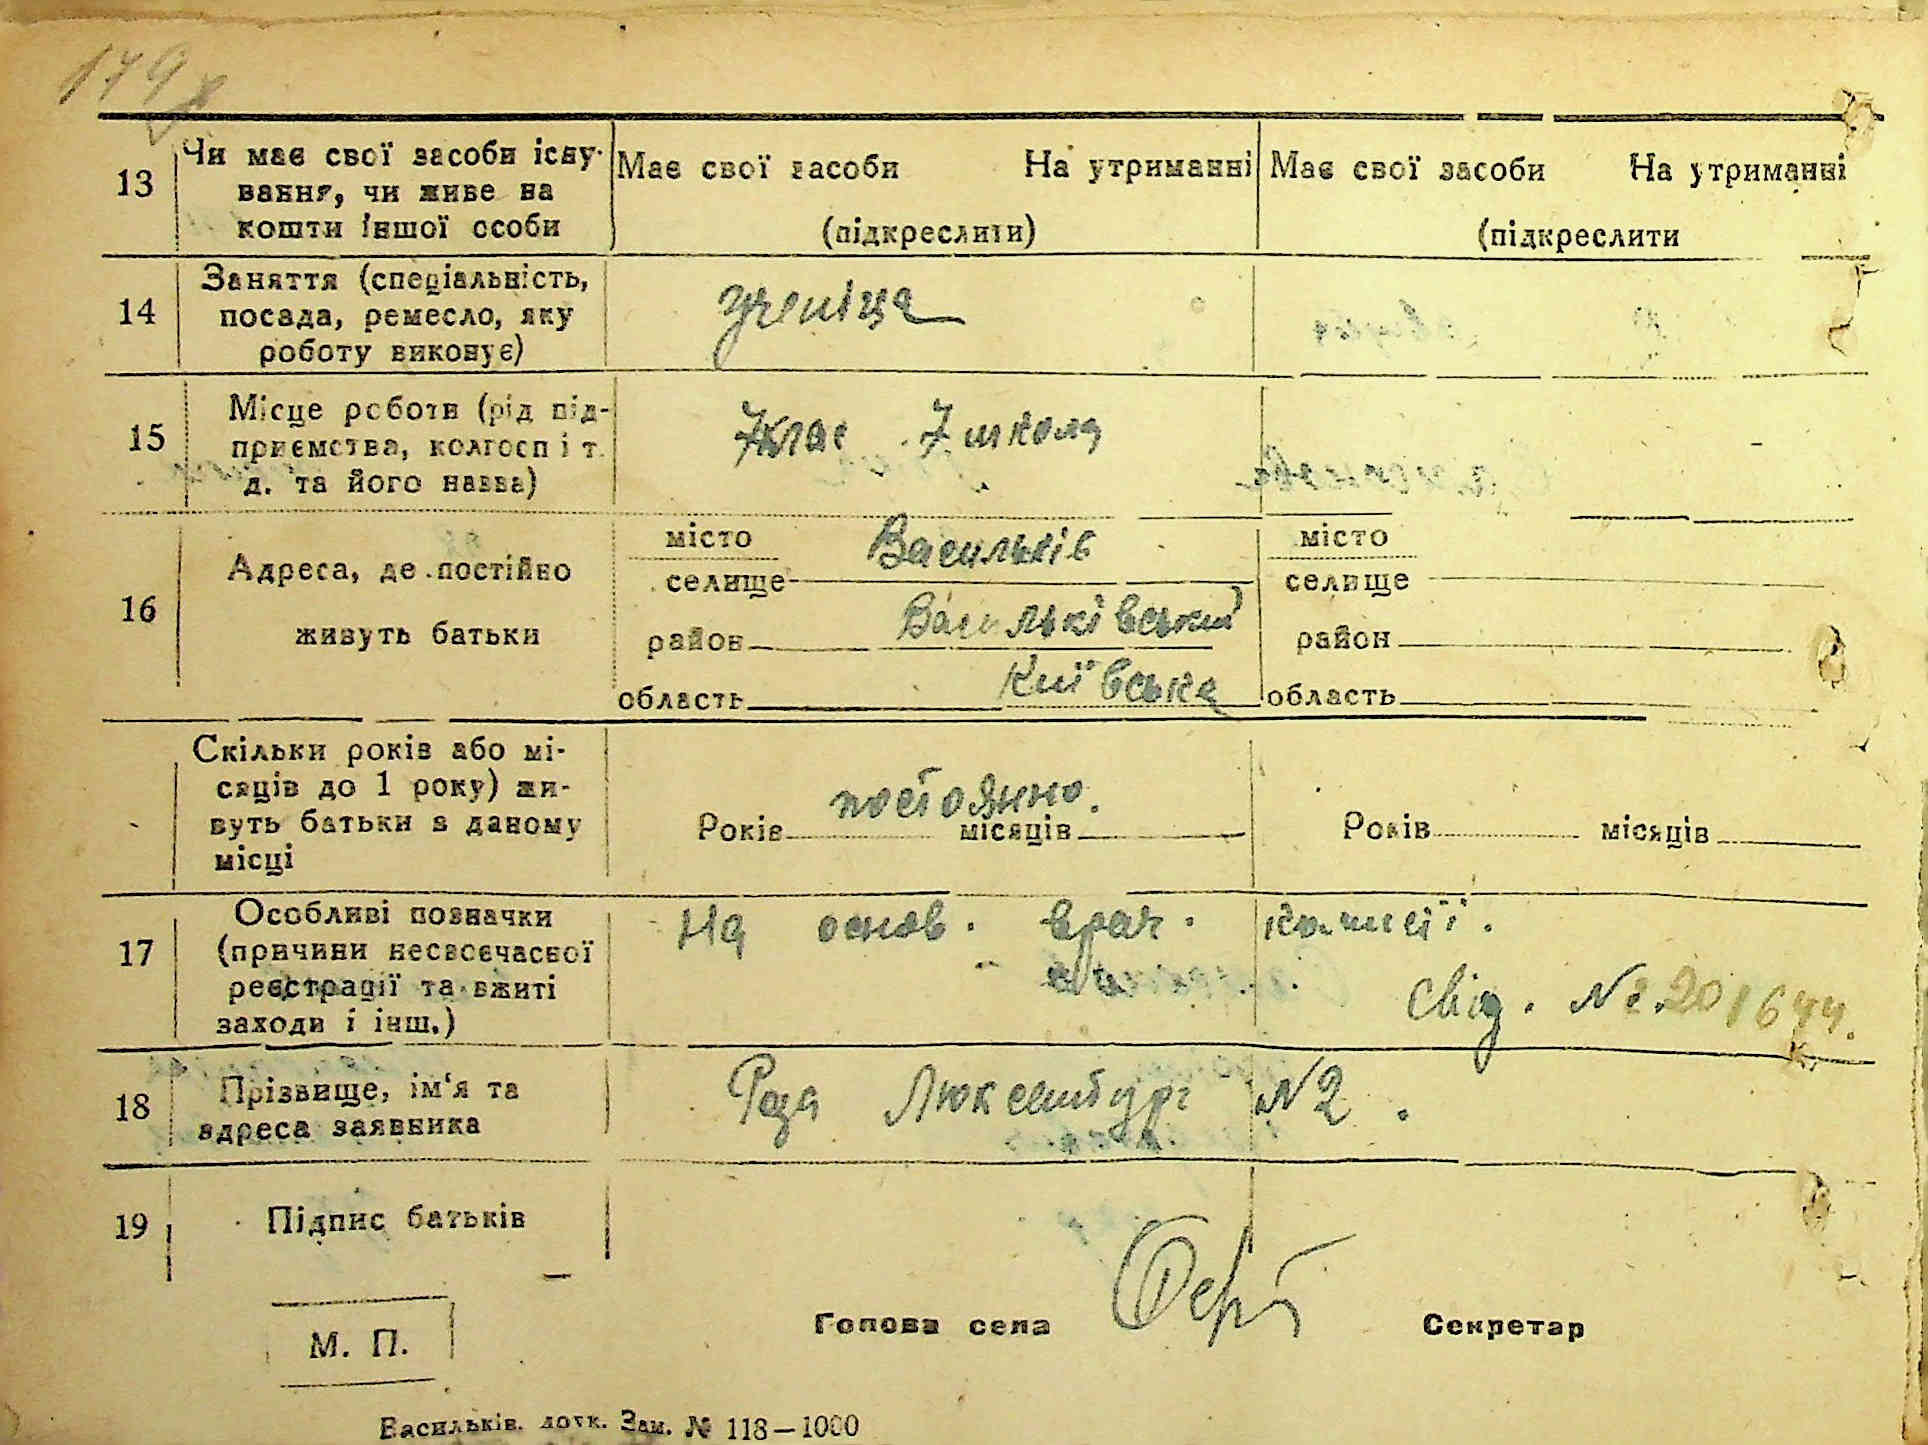 179
13
Чи має свої засоби існу-
вання, чи живе на
кошти іншої особи
Має свої засоби На утриманні
(підкреслити)
Має свої засоби На утриманні
(підкреслити
14
Заняття (спеціальність,
посада, ремесло, яку
роботу виконує)
учениця
15
Місце роботи (рід під-
приємства, колгосп і т.
д. та його назва)
7 клас 7 школа
16
Адреса, де постійно
живуть батьки
місто Васильків
селище
район Васильківський
область Київська
місто
селище
район
область
Скільки років або мі-
сяців до 1 року) жи-
вуть батьки в даному
місці
постоянно.
Років місяців
Років місяців
17
Особливі позначки
(причини несвоєчасної
реєстрації та вжиті
заходи і інш.)
На основ. врач. комисії.
Свід. № 201644.
18
Прізвище, ім'я та
адреса заявника
Роза Люксембург N2.
19
Підпис батьків
М. П.
Голова села Секретар
Васильків. друк. Зам. № 118—1000